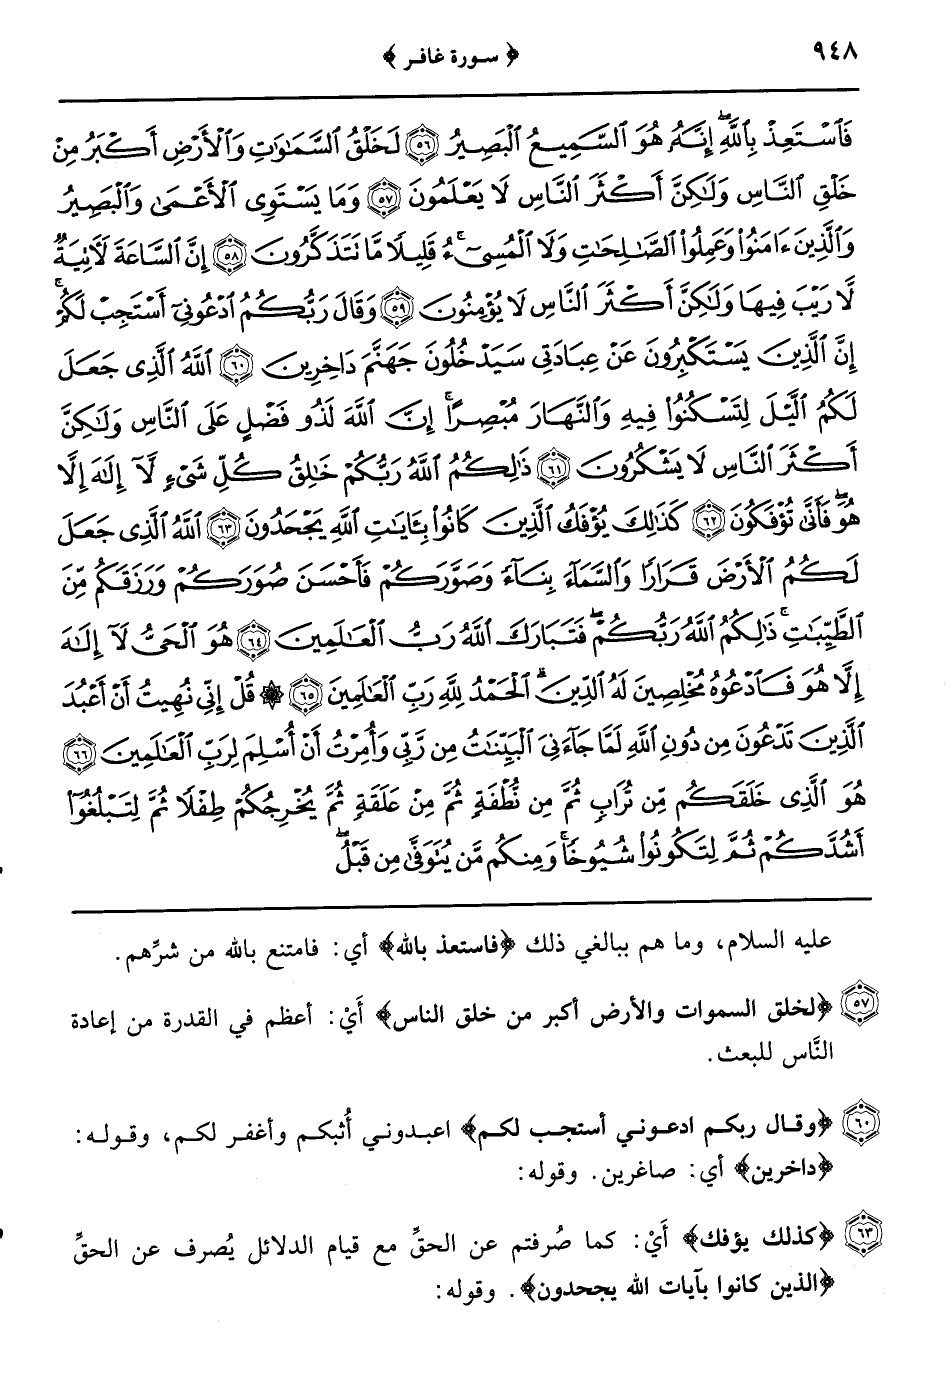 ٩٤٨
﴿ سورة غافر ﴾
فَٱسْتَعِذْ بِٱللَّهِۖ إِنَّهُۥ هُوَ ٱلسَّمِيعُ ٱلْبَصِيرُ ﴿٥٦﴾ لَخَلْقُ ٱلسَّمَٰوَٰتِ وَٱلْأَرْضِ أَكْبَرُ مِنْ
خَلْقِ ٱلنَّاسِ وَلَٰكِنَّ أَكْثَرَ ٱلنَّاسِ لَا يَعْلَمُونَ ﴿٥٧﴾ وَمَا يَسْتَوِى ٱلْأَعْمَىٰ وَٱلْبَصِيرُ
وَٱلَّذِينَ ءَامَنُوا۟ وَعَمِلُوا۟ ٱلصَّٰلِحَٰتِ وَلَا ٱلْمُسِىٓءُۚ قَلِيلًا مَّا نَتَذَكَّرُونَ ﴿٥٨﴾ إِنَّ ٱلسَّاعَةَ لَءَاتِيَةٌ
لَّا رَيْبَ فِيهَا وَلَٰكِنَّ أَكْثَرَ ٱلنَّاسِ لَا يُؤْمِنُونَ ﴿٥٩﴾ وَقَالَ رَبُّكُمُ ٱدْعُونِىٓ أَسْتَجِبْ لَكُمْۚ
إِنَّ ٱلَّذِينَ يَسْتَكْبِرُونَ عَنْ عِبَادَتِى سَيَدْخُلُونَ جَهَنَّمَ دَاخِرِينَ ﴿٦٠﴾ ٱللَّهُ ٱلَّذِى جَعَلَ
لَكُمُ ٱلَّيْلَ لِتَسْكُنُوا۟ فِيهِ وَٱلنَّهَارَ مُبْصِرًاۚ إِنَّ ٱللَّهَ لَذُو فَضْلٍ عَلَى ٱلنَّاسِ وَلَٰكِنَّ
أَكْثَرَ ٱلنَّاسِ لَا يَشْكُرُونَ ﴿٦١﴾ ذَٰلِكُمُ ٱللَّهُ رَبُّكُمْ خَٰلِقُ كُلِّ شَىْءٍ لَّآ إِلَٰهَ إِلَّا
هُوَۖ فَأَنَّىٰ تُؤْفَكُونَ ﴿٦٢﴾ كَذَٰلِكَ يُؤْفَكُ ٱلَّذِينَ كَانُوا۟ بِـَٔايَٰتِ ٱللَّهِ يَجْحَدُونَ ﴿٦٣﴾ ٱللَّهُ ٱلَّذِى جَعَلَ
لَكُمُ ٱلْأَرْضَ قَرَارًا وَٱلسَّمَآءَ بِنَآءً وَصَوَّرَكُمْ فَأَحْسَنَ صُوَرَكُمْ وَرَزَقَكُم مِّنَ
ٱلطَّيِّبَٰتِۚ ذَٰلِكُمُ ٱللَّهُ رَبُّكُمْۖ فَتَبَارَكَ ٱللَّهُ رَبُّ ٱلْعَٰلَمِينَ ﴿٦٤﴾ هُوَ ٱلْحَىُّ لَآ إِلَٰهَ
إِلَّا هُوَ فَٱدْعُوهُ مُخْلِصِينَ لَهُ ٱلدِّينَۗ ٱلْحَمْدُ لِلَّهِ رَبِّ ٱلْعَٰلَمِينَ ﴿٦٥﴾ ۞ قُلْ إِنِّى نُهِيتُ أَنْ أَعْبُدَ
ٱلَّذِينَ تَدْعُونَ مِن دُونِ ٱللَّهِ لَمَّا جَآءَنِىَ ٱلْبَيِّنَٰتُ مِن رَّبِّى وَأُمِرْتُ أَنْ أُسْلِمَ لِرَبِّ ٱلْعَٰلَمِينَ ﴿٦٦﴾
هُوَ ٱلَّذِى خَلَقَكُم مِّن تُرَابٍ ثُمَّ مِن نُّطْفَةٍ ثُمَّ مِنْ عَلَقَةٍ ثُمَّ يُخْرِجُكُمْ طِفْلًا ثُمَّ لِتَبْلُغُوٓا۟
أَشُدَّكُمْ ثُمَّ لِتَكُونُوا۟ شُيُوخًاۚ وَمِنكُم مَّن يُتَوَفَّىٰ مِن قَبْلُۖ
عليه السلام، وما هم ببالغي ذلك ﴿فاستعذ بالله﴾ أي: فامتنع بالله من شرِّهم.
﴿٥٧﴾ ﴿لخلق السموات والأرض أكبر من خلق الناس﴾ أَيْ: أعظم في القدرة من إعادة
النَّاس للبعث.
﴿٦٠﴾ ﴿وقال ربكم ادعوني أستجب لكم﴾ اعبدوني أُثبكم وأغفر لكم، وقوله:
﴿داخرين﴾ أي: صاغرين. وقوله:
﴿٦٣﴾ ﴿كذلك يؤفك﴾ أَيْ: كما صُرفتم عن الحقِّ مع قيام الدلائل يُصرف عن الحقِّ
﴿الذين كانوا بآيات الله يجحدون﴾. وقوله: